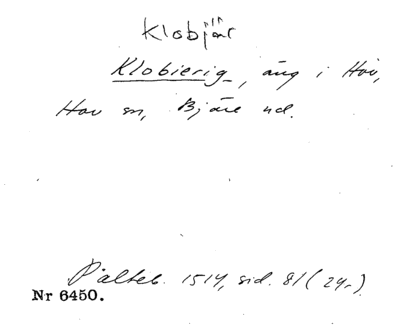 Klobjär
Klobierig, äng i Hov,
Hov sn, Bjäre hd.
Pålteb. 1514, sid. 81 (24r)
Nr 6450.